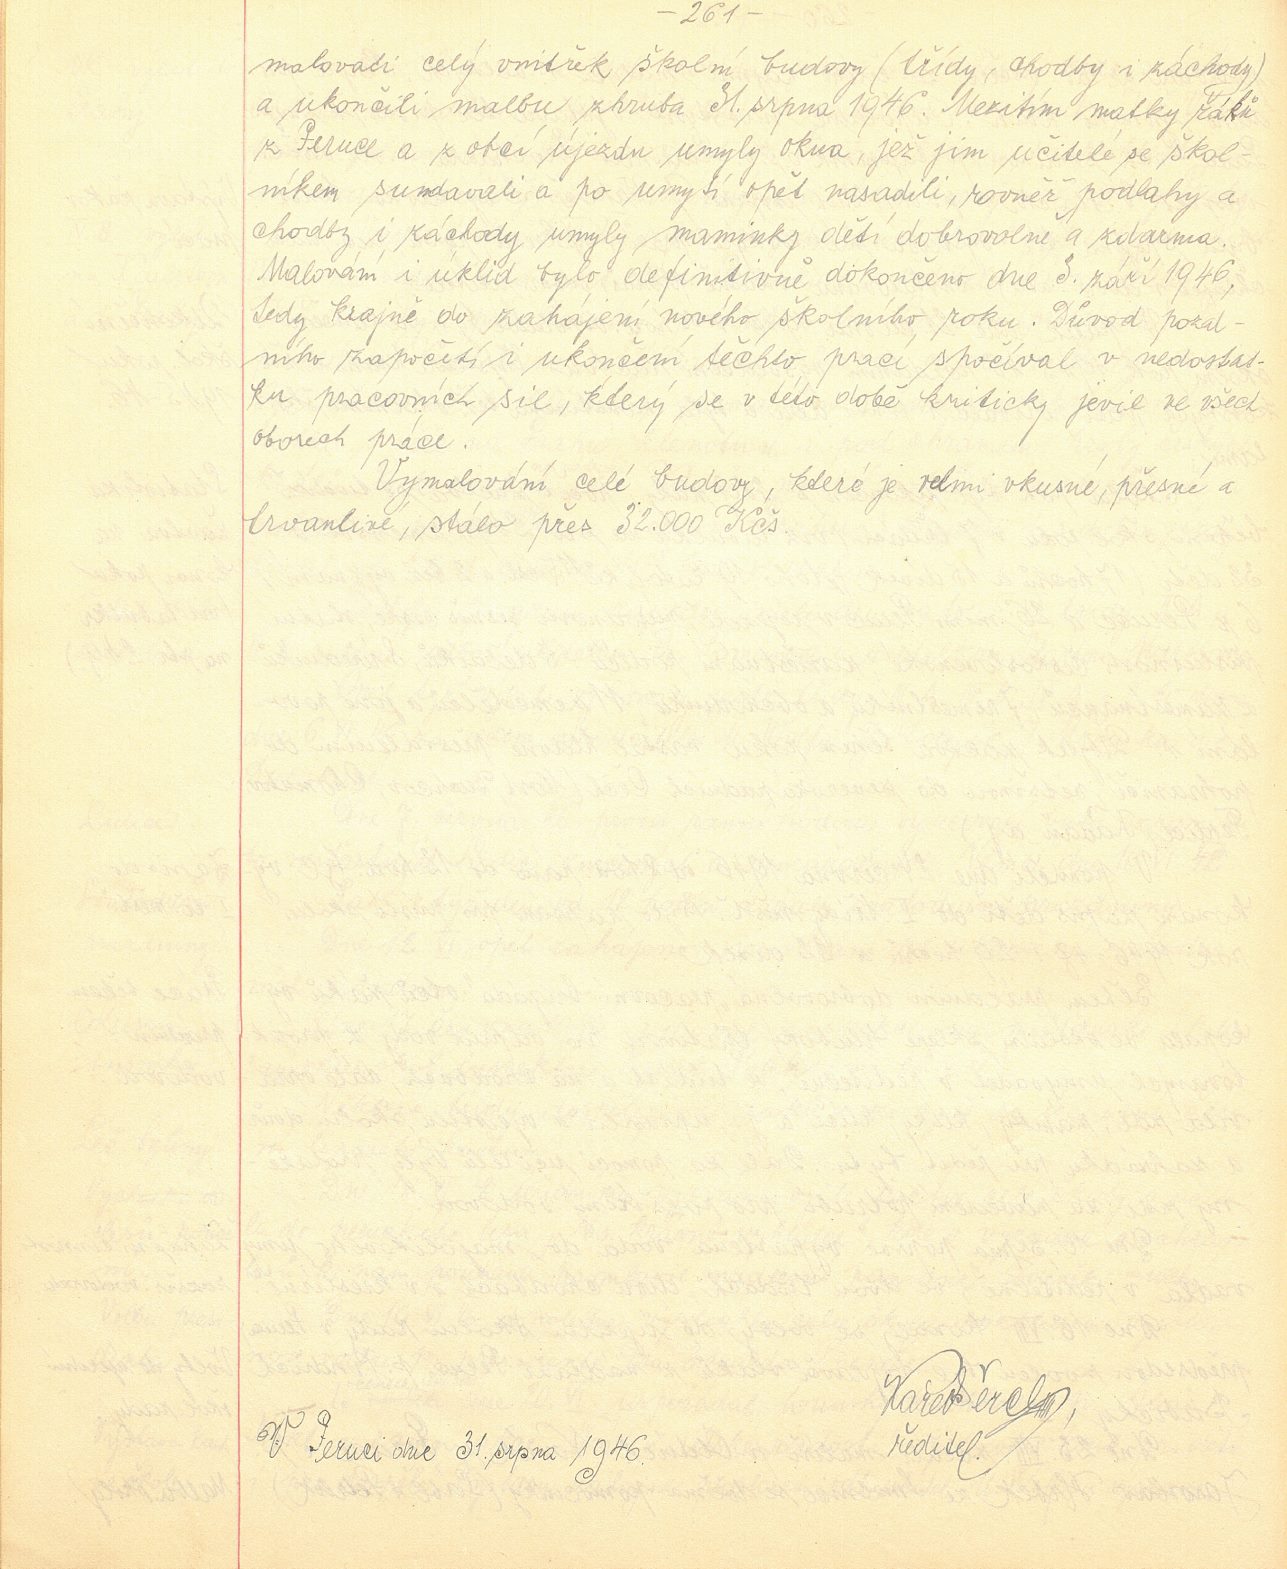 - 261 -
malovati celý vnitřek školní budovy (třídy, chodby i záchody)
a ukončili malbu zhruba 31. srpna 1946. Mezitím matky žáků
z Peruce a z obcí újezdu umyly okna, jež jim učitelé se škol-
níkem sundavali a po umytí opět nasadili, rovněž podlahy a
chodby i záchody umyly maminky dětí dobrovolně a zdarma.
Malování i úklid bylo definitivně dokončeno dne 3. září 1946,
tedy krajně do zahájení nového školního roku. Důvod pozd-
ního započetí i ukončení těchto prací spočíval v nedostat-
ku pracovních sil, který se v této době kriticky jevil ve všech
oborech práce.
Vymalování celé budovy, které je velmi vkusné, přesné a
trvanlivé, stálo přes 32.000 Kčs.
Karel
ředitel.
V Peruci dne 31. srpna 1946.